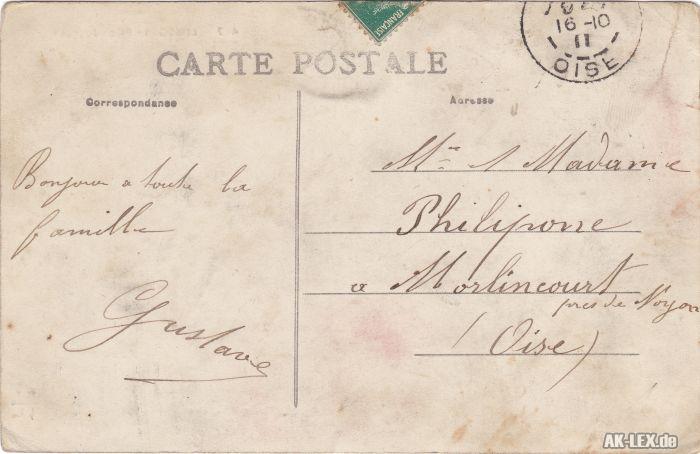 FRANÇAISE
16-10
11
OISE
CARTE POSTALE
Correspondanse
Adresse
Bonjour a toute la
famille
Gustave
Mr & Madame
Philipone
a Morlincourt
pres de Noyon
(Oise)
AK-LEX.de